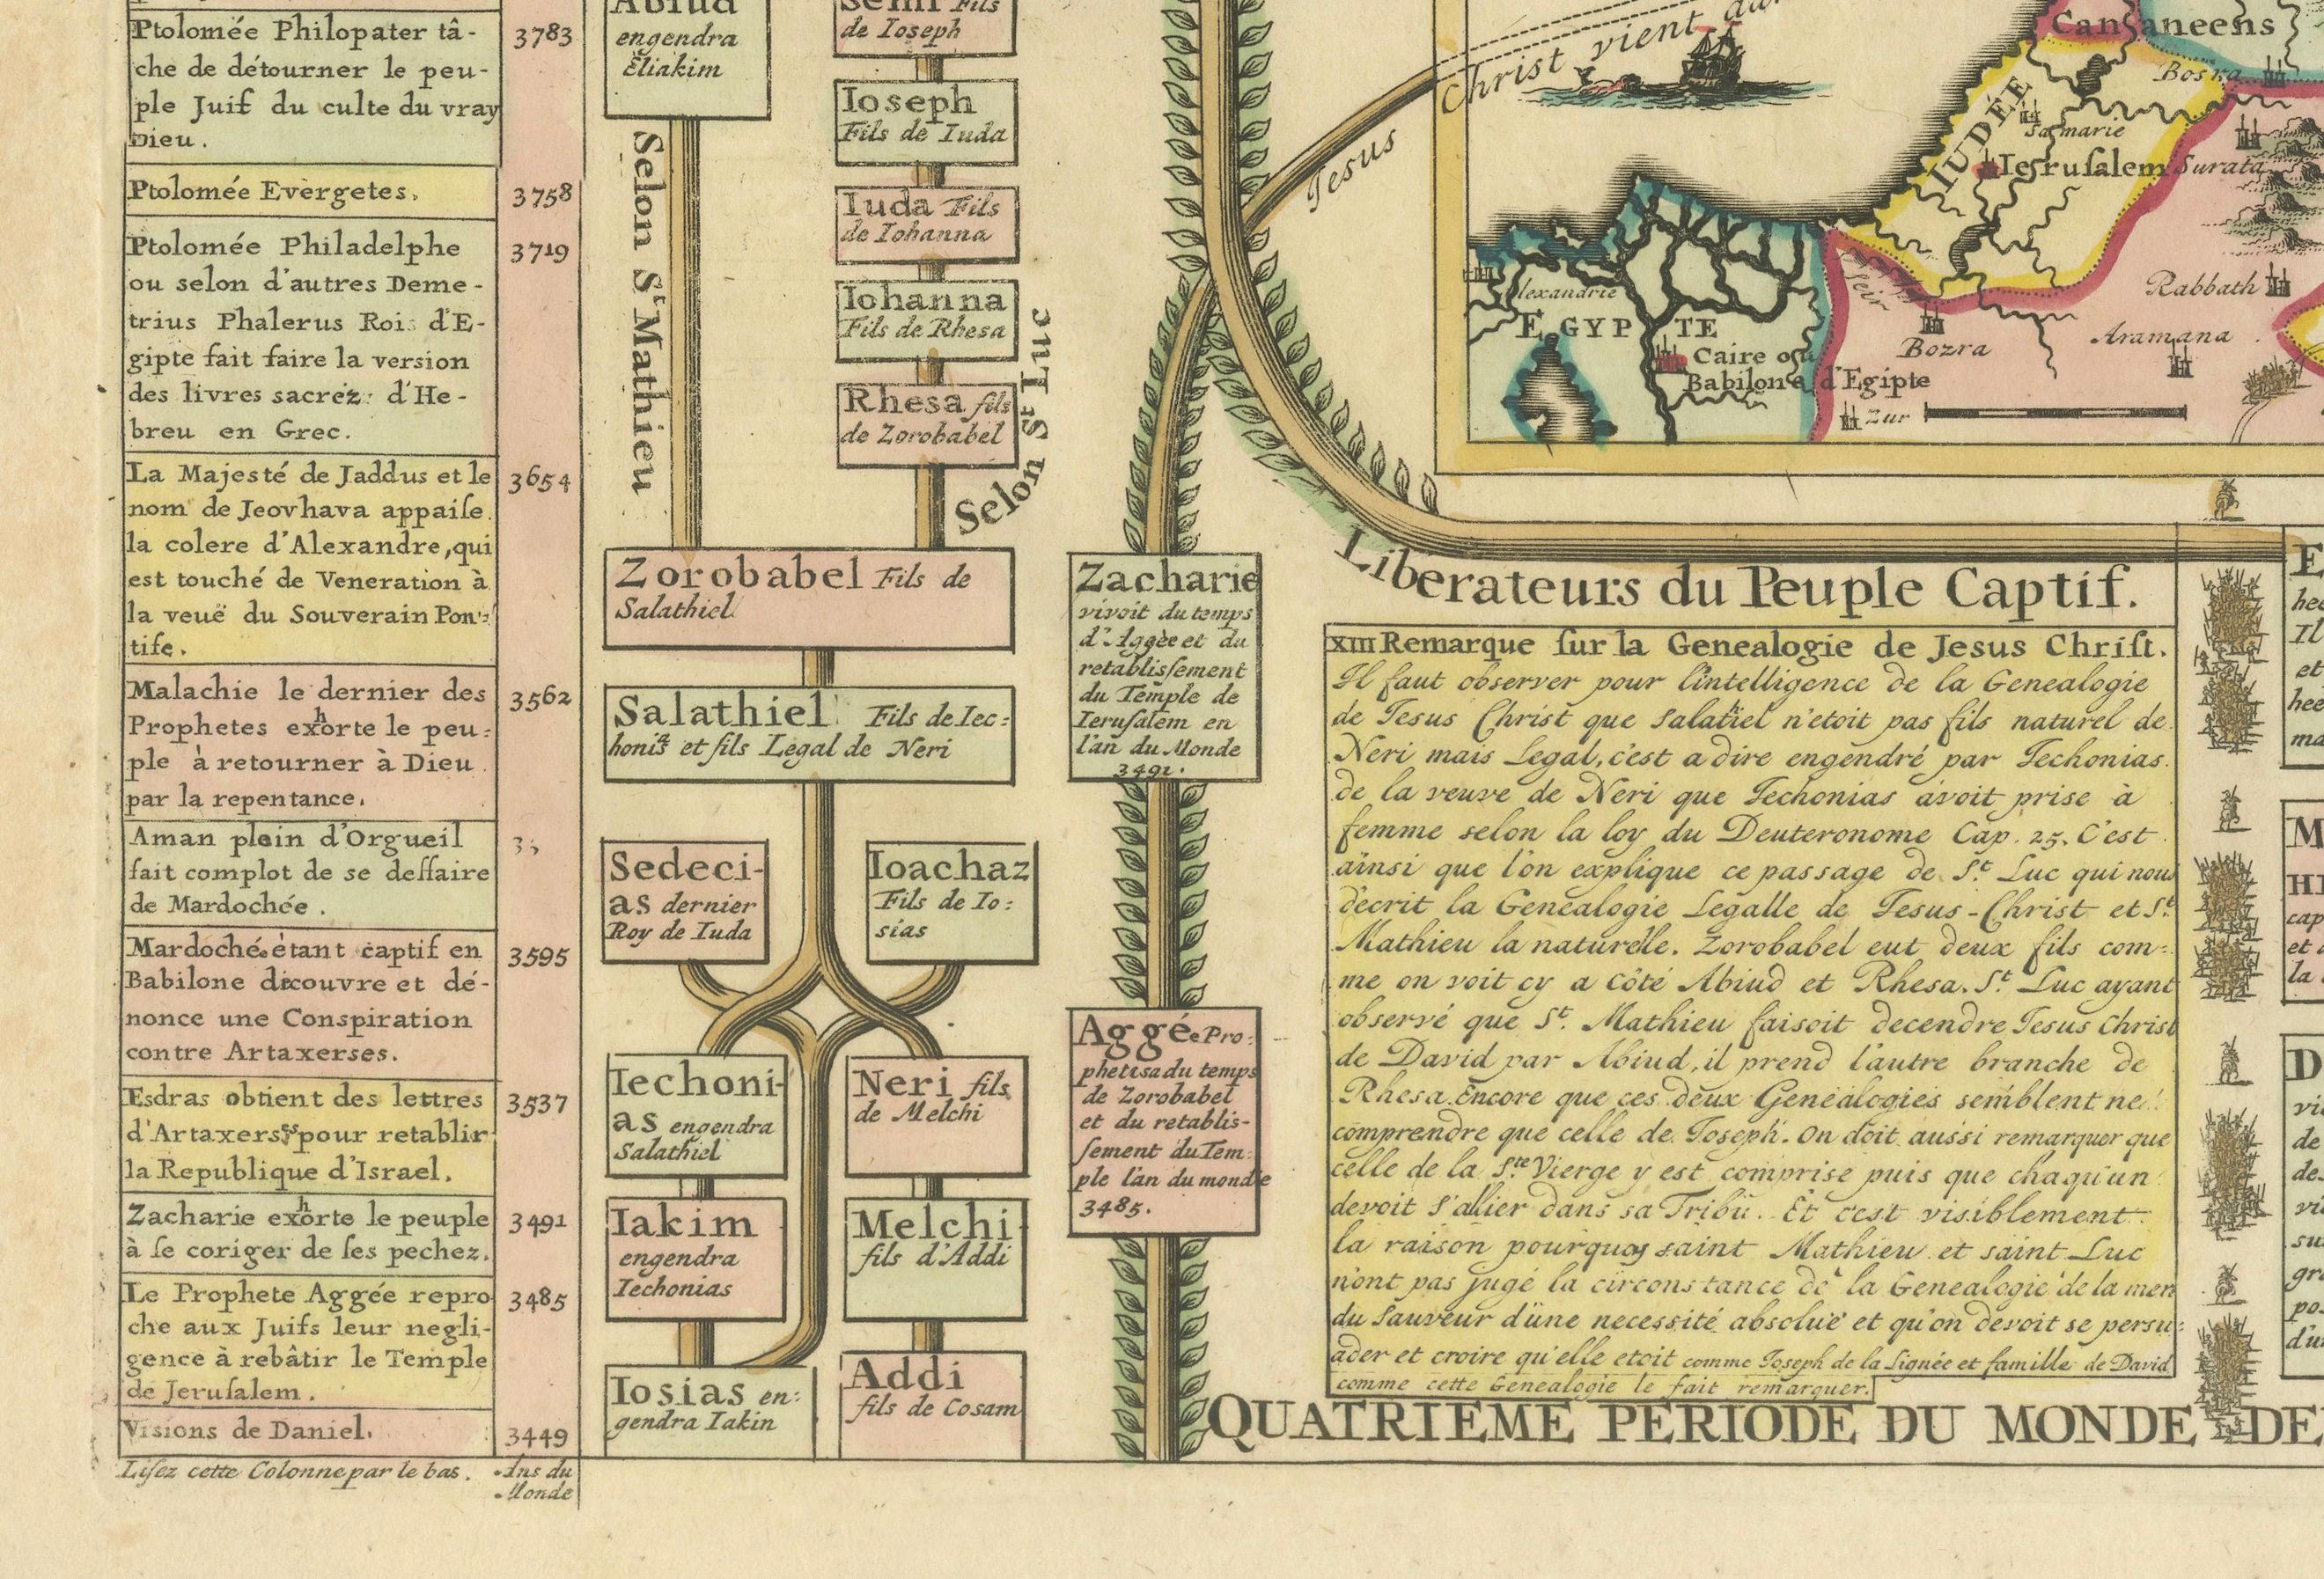 Ptolomée Philopater tâ- 3783
che de détourner le peu-
ple Juif du culte du vray
Dieu.
Ptolomée Evergetes. 3758
Ptolomée Philadelphe 3719
ou selon d'autres Deme-
trius Phalerus Roi d'E-
gipte fait faire la version
des livres sacréz d'He-
breu en Grec.
La Majesté de Jaddus et le 3654
nom de Jeovhava appaiſe
la colere d'Alexandre, qui
est touché de Veneration à
la veuë du Souverain Pon-
tife.
Malachie le dernier des 3562
Prophetes exhorte le peu-
ple à retourner à Dieu
par la repentance.
Aman plein d'Orgueil
fait complot de se deſſaire
de Mardochée.
Mardochée étant captif en 3595
Babilone découvre et dé-
nonce une Conspiration
contre Artaxerses.
Esdras obtient des lettres 3537
d'Artaxerses pour retablir
la Republique d'Israel.
Zacharie exhorte le peuple 3491
à ſe coriger de ſes pechez.
Le Prophete Aggée repro 3485
che aux Juifs leur negli-
gence à rebâtir le Temple
de Jeruſalem.
Visions de Daniel. 3449
Liſez cette Colonne par le bas. Ans du
Monde
Abiud
engendra
Eliakim
Selon St. Mathieu
Semi Fils
de Ioseph
Ioseph
Fils de Iuda
Iuda Fils
de Iohanna
Iohanna
Fils de Rhesa
Rhesa fils
de Zorobabel
Selon St. Luc
Zorobabel Fils de
Salathiel
Salathiel Fils de Iec-
honias et fils Legal de Neri
Sedeci-
as dernier
Roy de Iuda
Ioachaz
Fils de Io-
sias
Iechoni-
as engendra
Salathiel
Neri fils
de Melchi
Iakim
engendra
Iechonias
Melchi
fils d'Addi
Iosias en-
gendra Iakin
Addi
fils de Cosam
Zacharie
vivoit du temps
d'Aggée et du
retabliſsement
du Temple de
Ieruſalem en
l'an du Monde
3491.
Aggée Pro-
phetisa du temps
de Zorobabel
et du retablis-
ſement du Tem-
ple l'an du monde
3485.
Jesus Christ vient
Cananeens
Bosra
IUDÉE
Samarie
Ieruſalem
Surata
Rabbath
Aramana
Seir
Bozra
Alexandrie
EGYPTE
Caire ou
Babilone d'Egipte
Zur
Liberateurs du Peuple Captif.
XIII Remarque ſur la Genealogie de Jesus Chriſt.
Il faut observer pour l'intelligence de la Genealogie
de Jesus Christ que Salathiel n'etoit pas fils naturel de
Neri mais Legal, c'est a dire engendré par Jechonias
de la veuve de Neri que Jechonias avoit prise à
femme selon la loy du Deuteronome Cap. 25. C'est
ainsi que l'on explique ce passage de St. Luc qui nous
décrit la Genealogie Legalle de Jesus-Christ et St.
Mathieu la naturelle. Zorobabel eut deux fils com-
me on voit cy a côté Abiud et Rhesa. St. Luc ayant
observé que St. Mathieu faisoit decendre Jesus Christ
de David par Abiud, il prend l'autre branche de
Rhesa. Encore que ces deux Genealogies semblent ne
comprendre que celle de Joseph. On doit aussi remarquer que
celle de la Ste. Vierge y est comprise puis que chaqu'un
devoit s'allier dans sa Tribu. Et c'est visiblement
la raison pourquoy saint Mathieu et saint Luc
n'ont pas jugé la circonstance de la Genealogie de la mere
du Sauveur d'une necessité absoluë et qu'on devoit se persu-
ader et croire qu'elle etoit comme Joseph de la Lignée et famille de David
comme cette Genealogie le fait remarquer.
QUATRIEME PERIODE DU MONDE DE